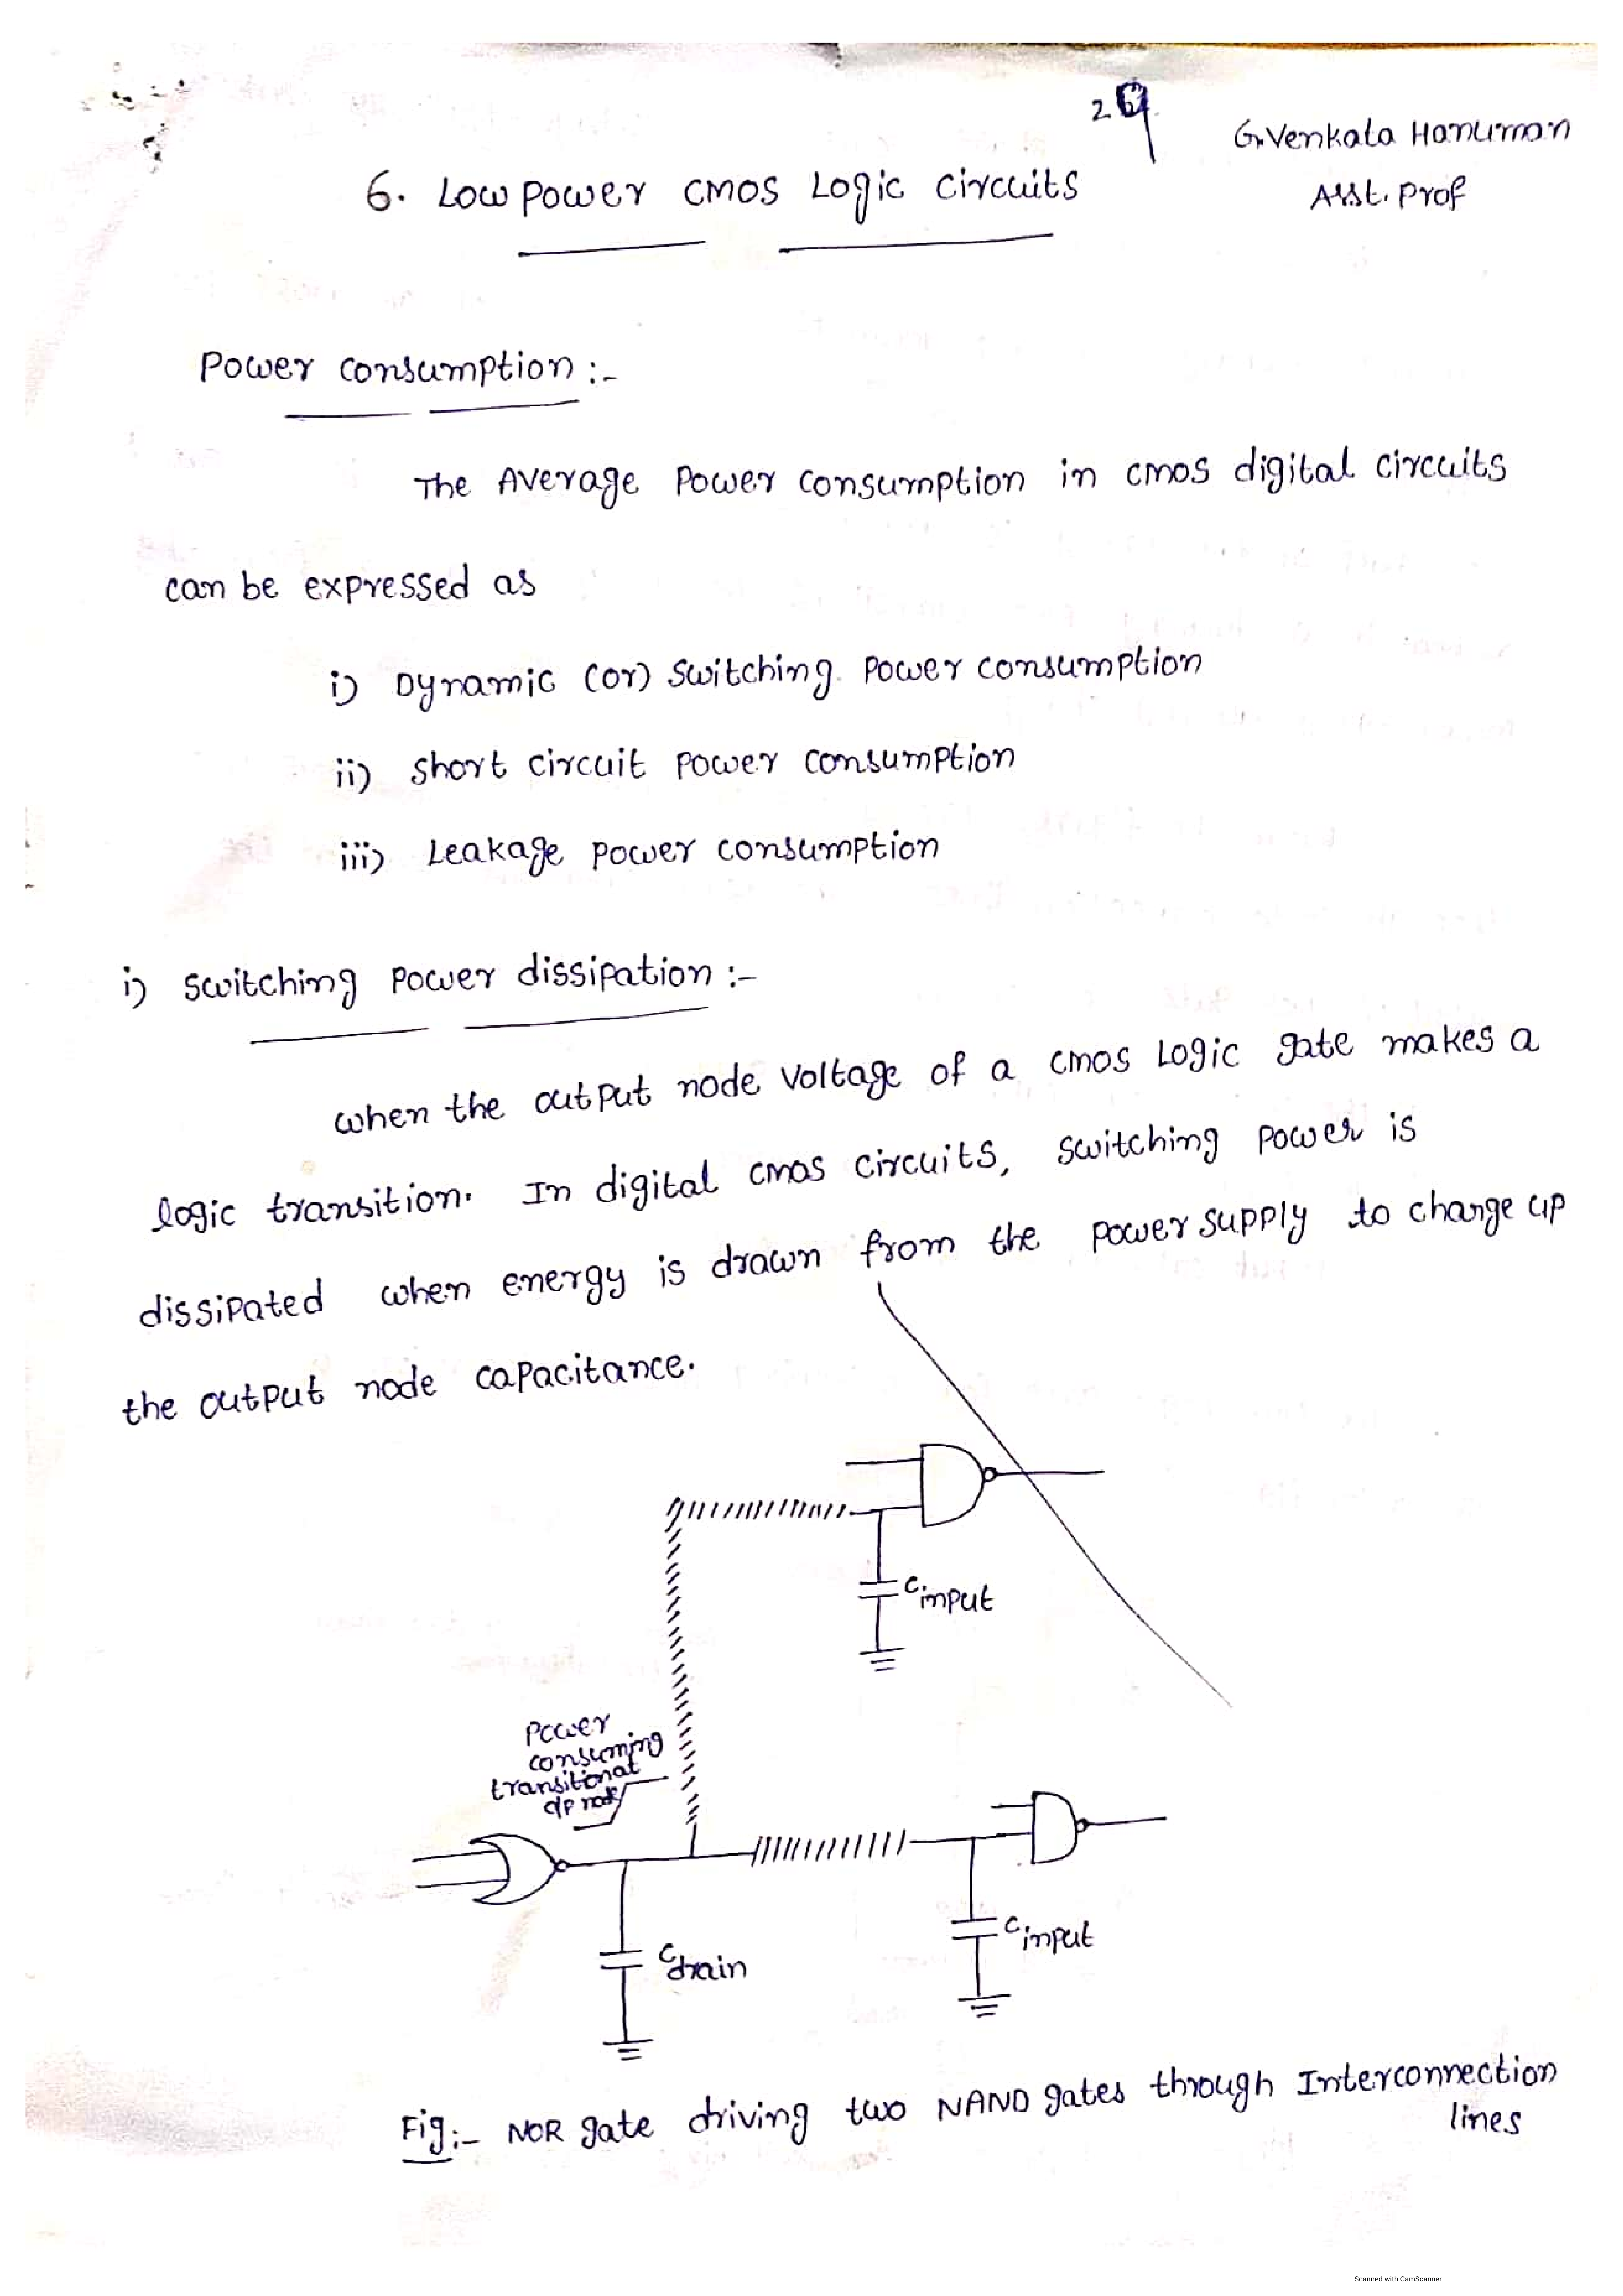 G.Venkata Hanuman
Asst. Prof
6. Low power CMOS Logic circuits
Power consumption :-
The Average Power consumption in CMOS digital circuits
can be expressed as
i) Dynamic (or) switching Power consumption
ii) short circuit power consumption
iii) Leakage power consumption
i) switching power dissipation :-
when the output node voltage of a CMOS Logic gate makes a
logic transition. In digital CMOS circuits, switching power is
dissipated when energy is drawn from the power supply to change up
the output node capacitance.
Cinput
Power
consuming
transitional
o/p node
Cinput
Cdrain
Fig:- NOR gate driving two NAND gates through Interconnection
lines
Scanned with CamScanner